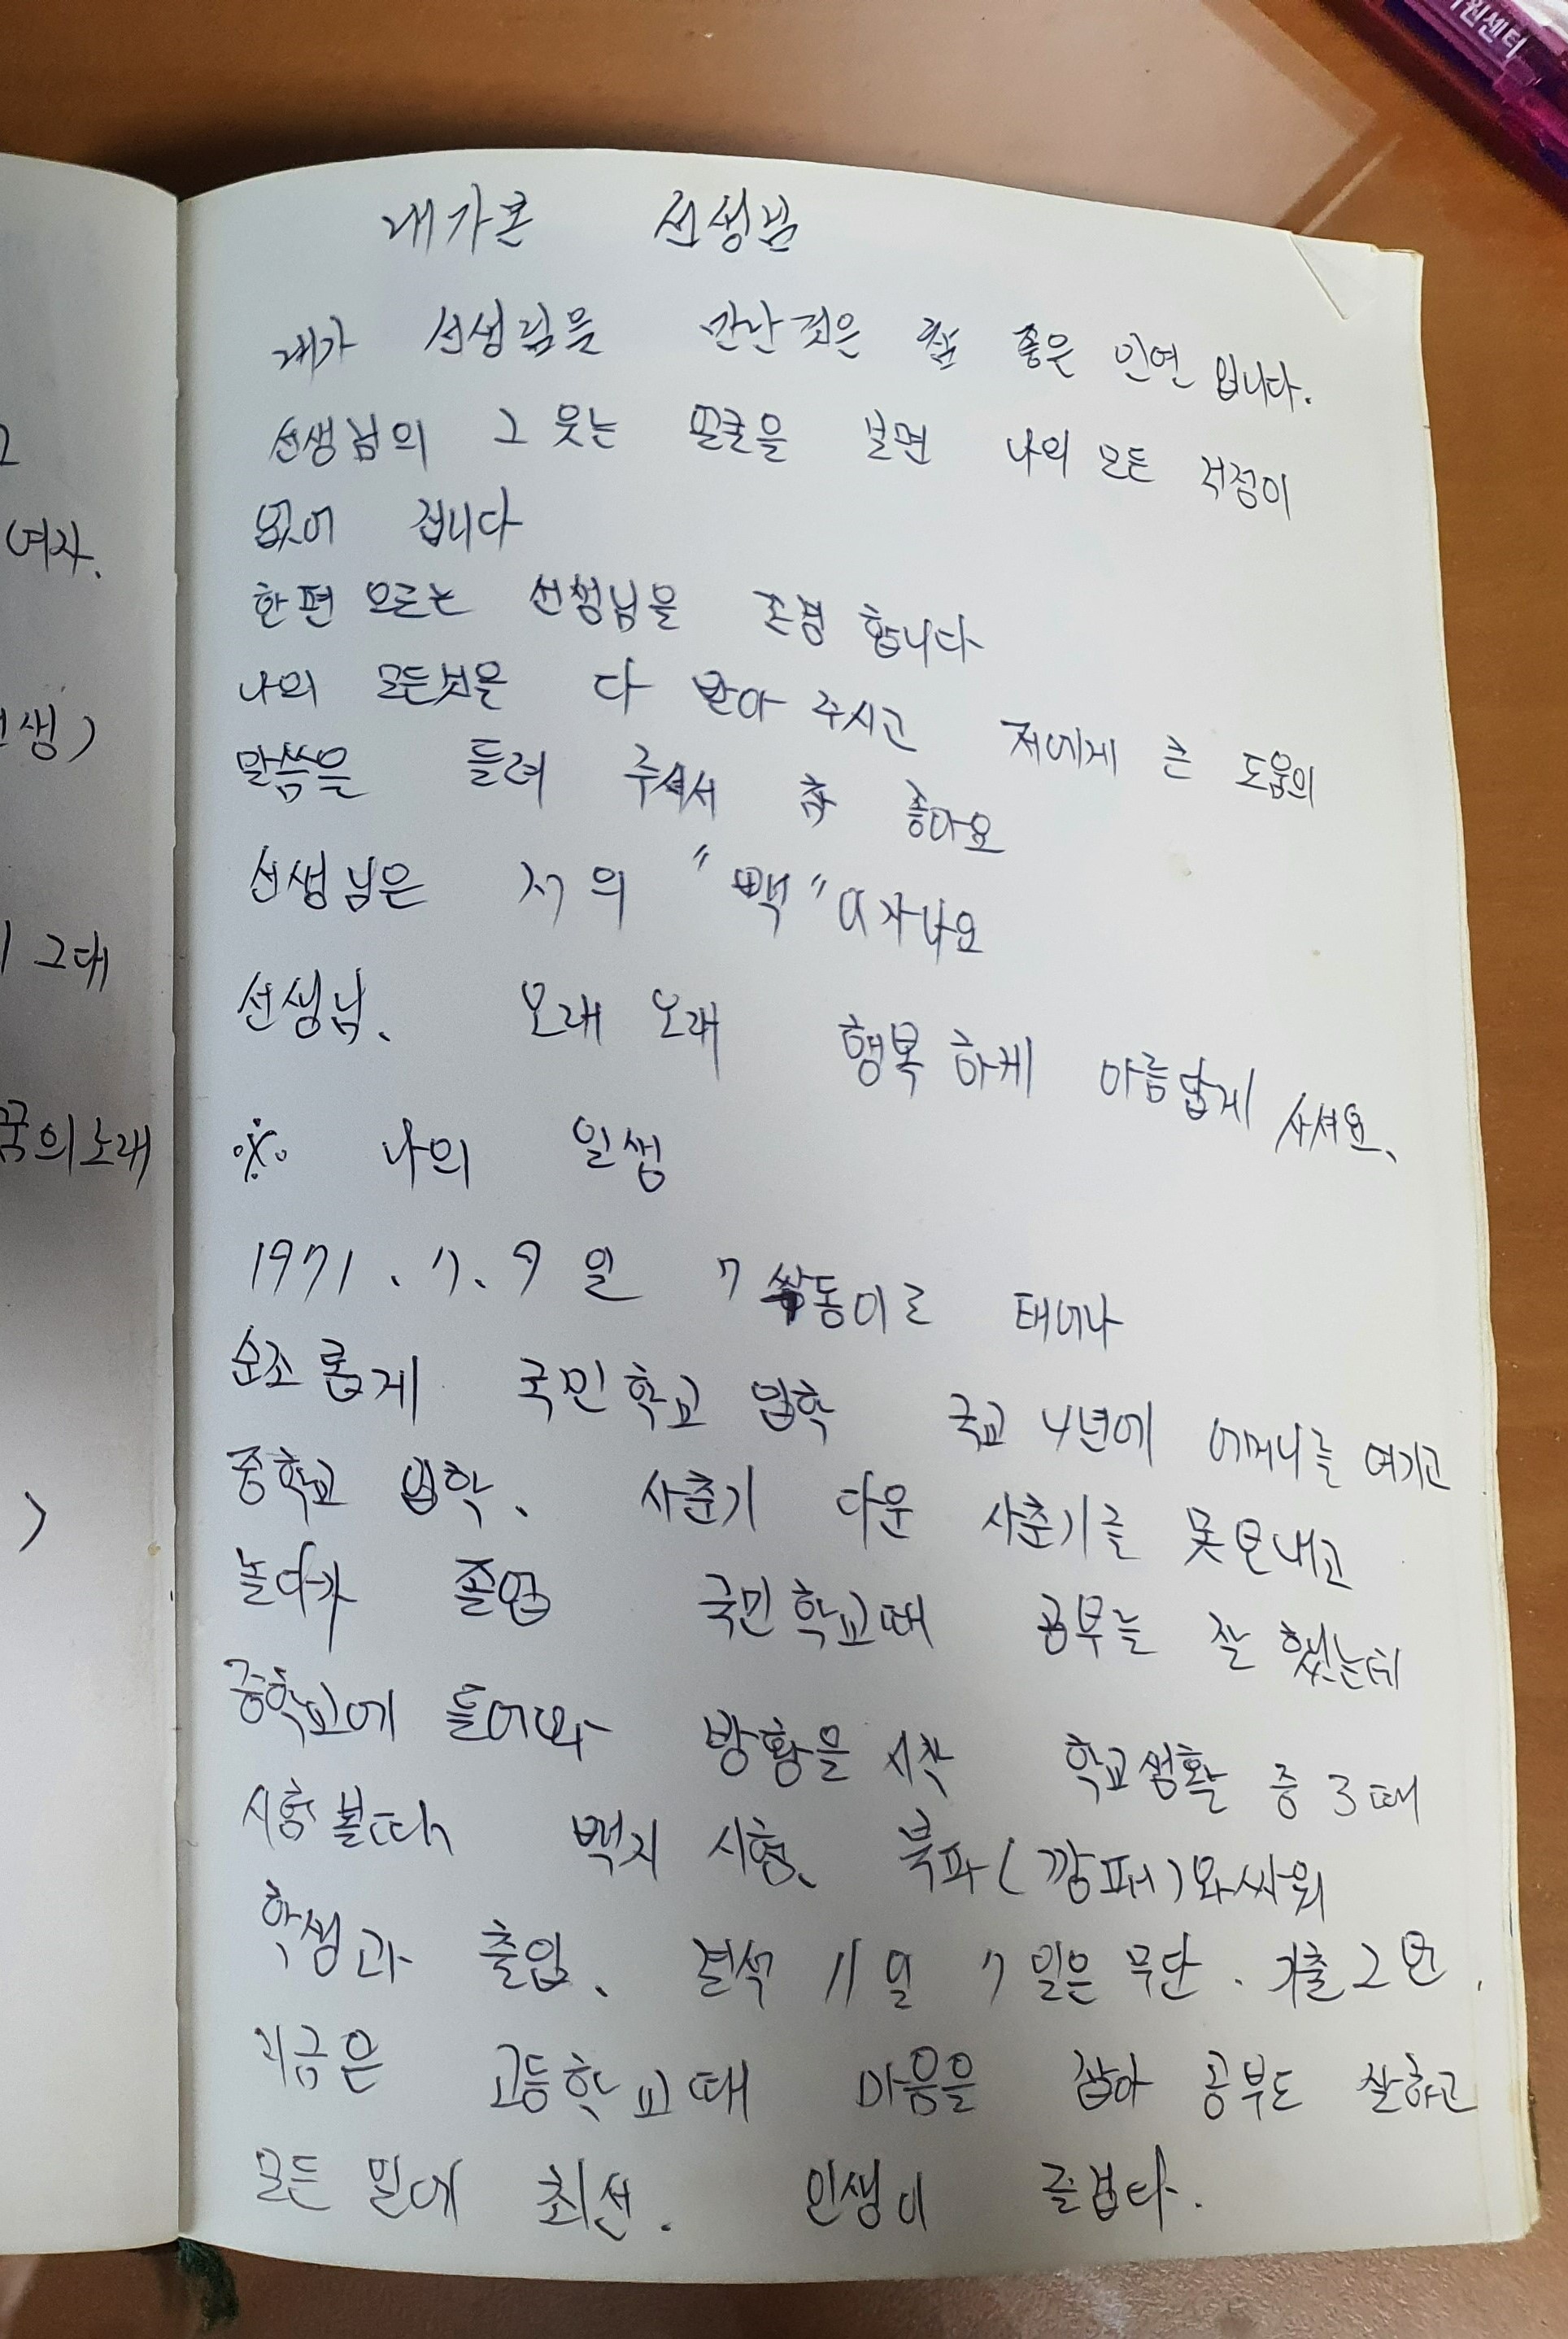 내가본 선생님
내가 선생님을 만난것은 참 좋은 인연 입니다.
선생님의 그 웃는 얼굴을 보면 나의 모든 걱정이
없어 집니다
한편 으로는 선생님을 존경 합니다
나의 모든것을 다 받아 주시고 저에게 큰 도움의
말씀을 들려 주셔서 참 좋아요
선생님은 저의 "빽"
선생님、 오래 오래 행복 하게 아름답게 사셔요、
※ 나의 일생
1971. 7. 9 일 7 쌍동이로 태어나
순조롭게 국민학교 입학 국교 4년에 어머니를 여기고
중학교 입학、 사춘기 다운 사춘기를 못보내고
놀다가 졸업 국민학교때 공부는 잘 했는데
중학교에 들어와 방황을 시작 학교생활 중 3때
시험볼때 백지 시험、 북파(깡패)와싸워
학생과 출입、 결석 11일 7일은 무단. 가출 2번.
지금은 고등학교때 마음을 잡아 공부도 잘하고
모든 일에 최선. 인생이 즐겁다.
여자.
생)
그대
꿈의노래
원센터